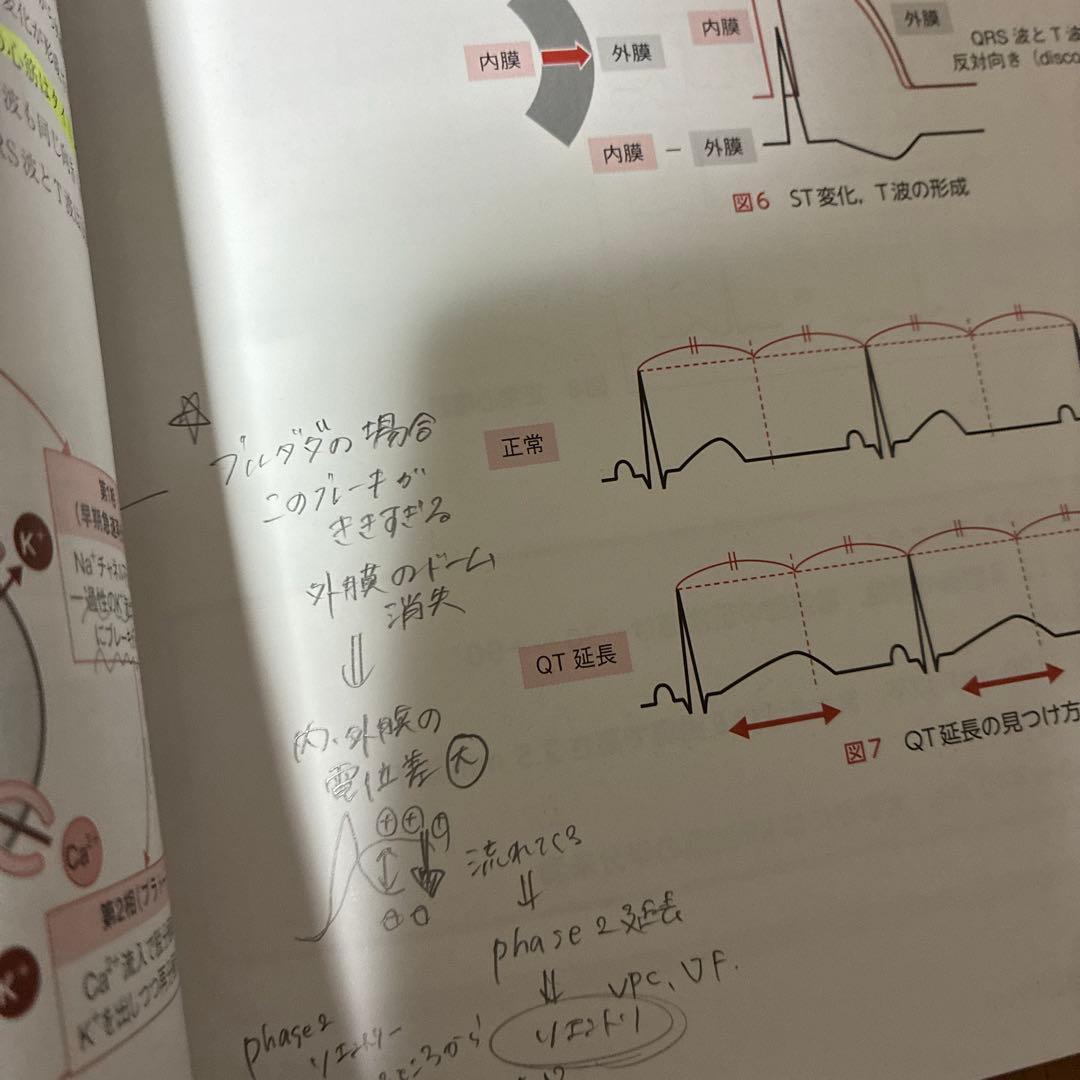 内膜
外膜
内膜
外膜
QRS波とT波
反対向き（disco
内膜 － 外膜
図6 ST変化，T波の形成
心筋は
波も同じ向き
RS波とT波は
正常
QT延長
図7 QT延長の見つけ方
ブルガダの場合
このブレーキが
ききすぎる
外膜のドーム
消失
⇓
内、外膜の
電位差 大
⊕⊕
流れてくる
⇓
phase 2 延長
⇓ VPC、VF.
リエントリ
phase 2
リエントリー
ところから
K⁺
第1相
（早期急速
Na⁺チャネル
一過性のK⁺
にブレーキ
Ca²⁺
第2相（プラ
Ca²⁺流入で
K⁺を出しつつ
K⁺